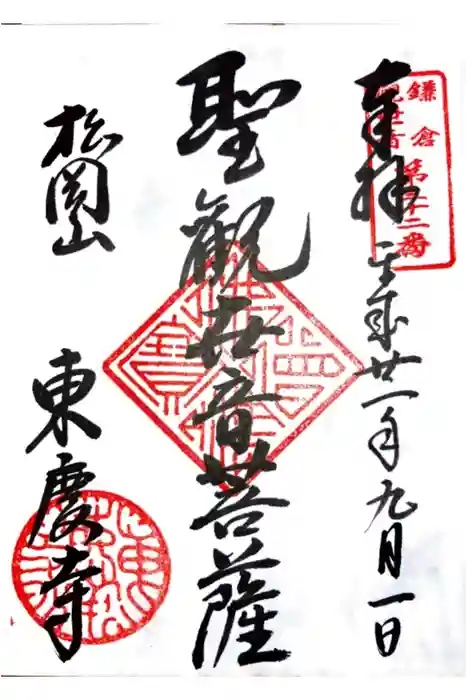 鎌倉
観世音
第三十二番
奉拝
平成廿一年九月一日
聖観世音菩薩
松岡山
東慶寺